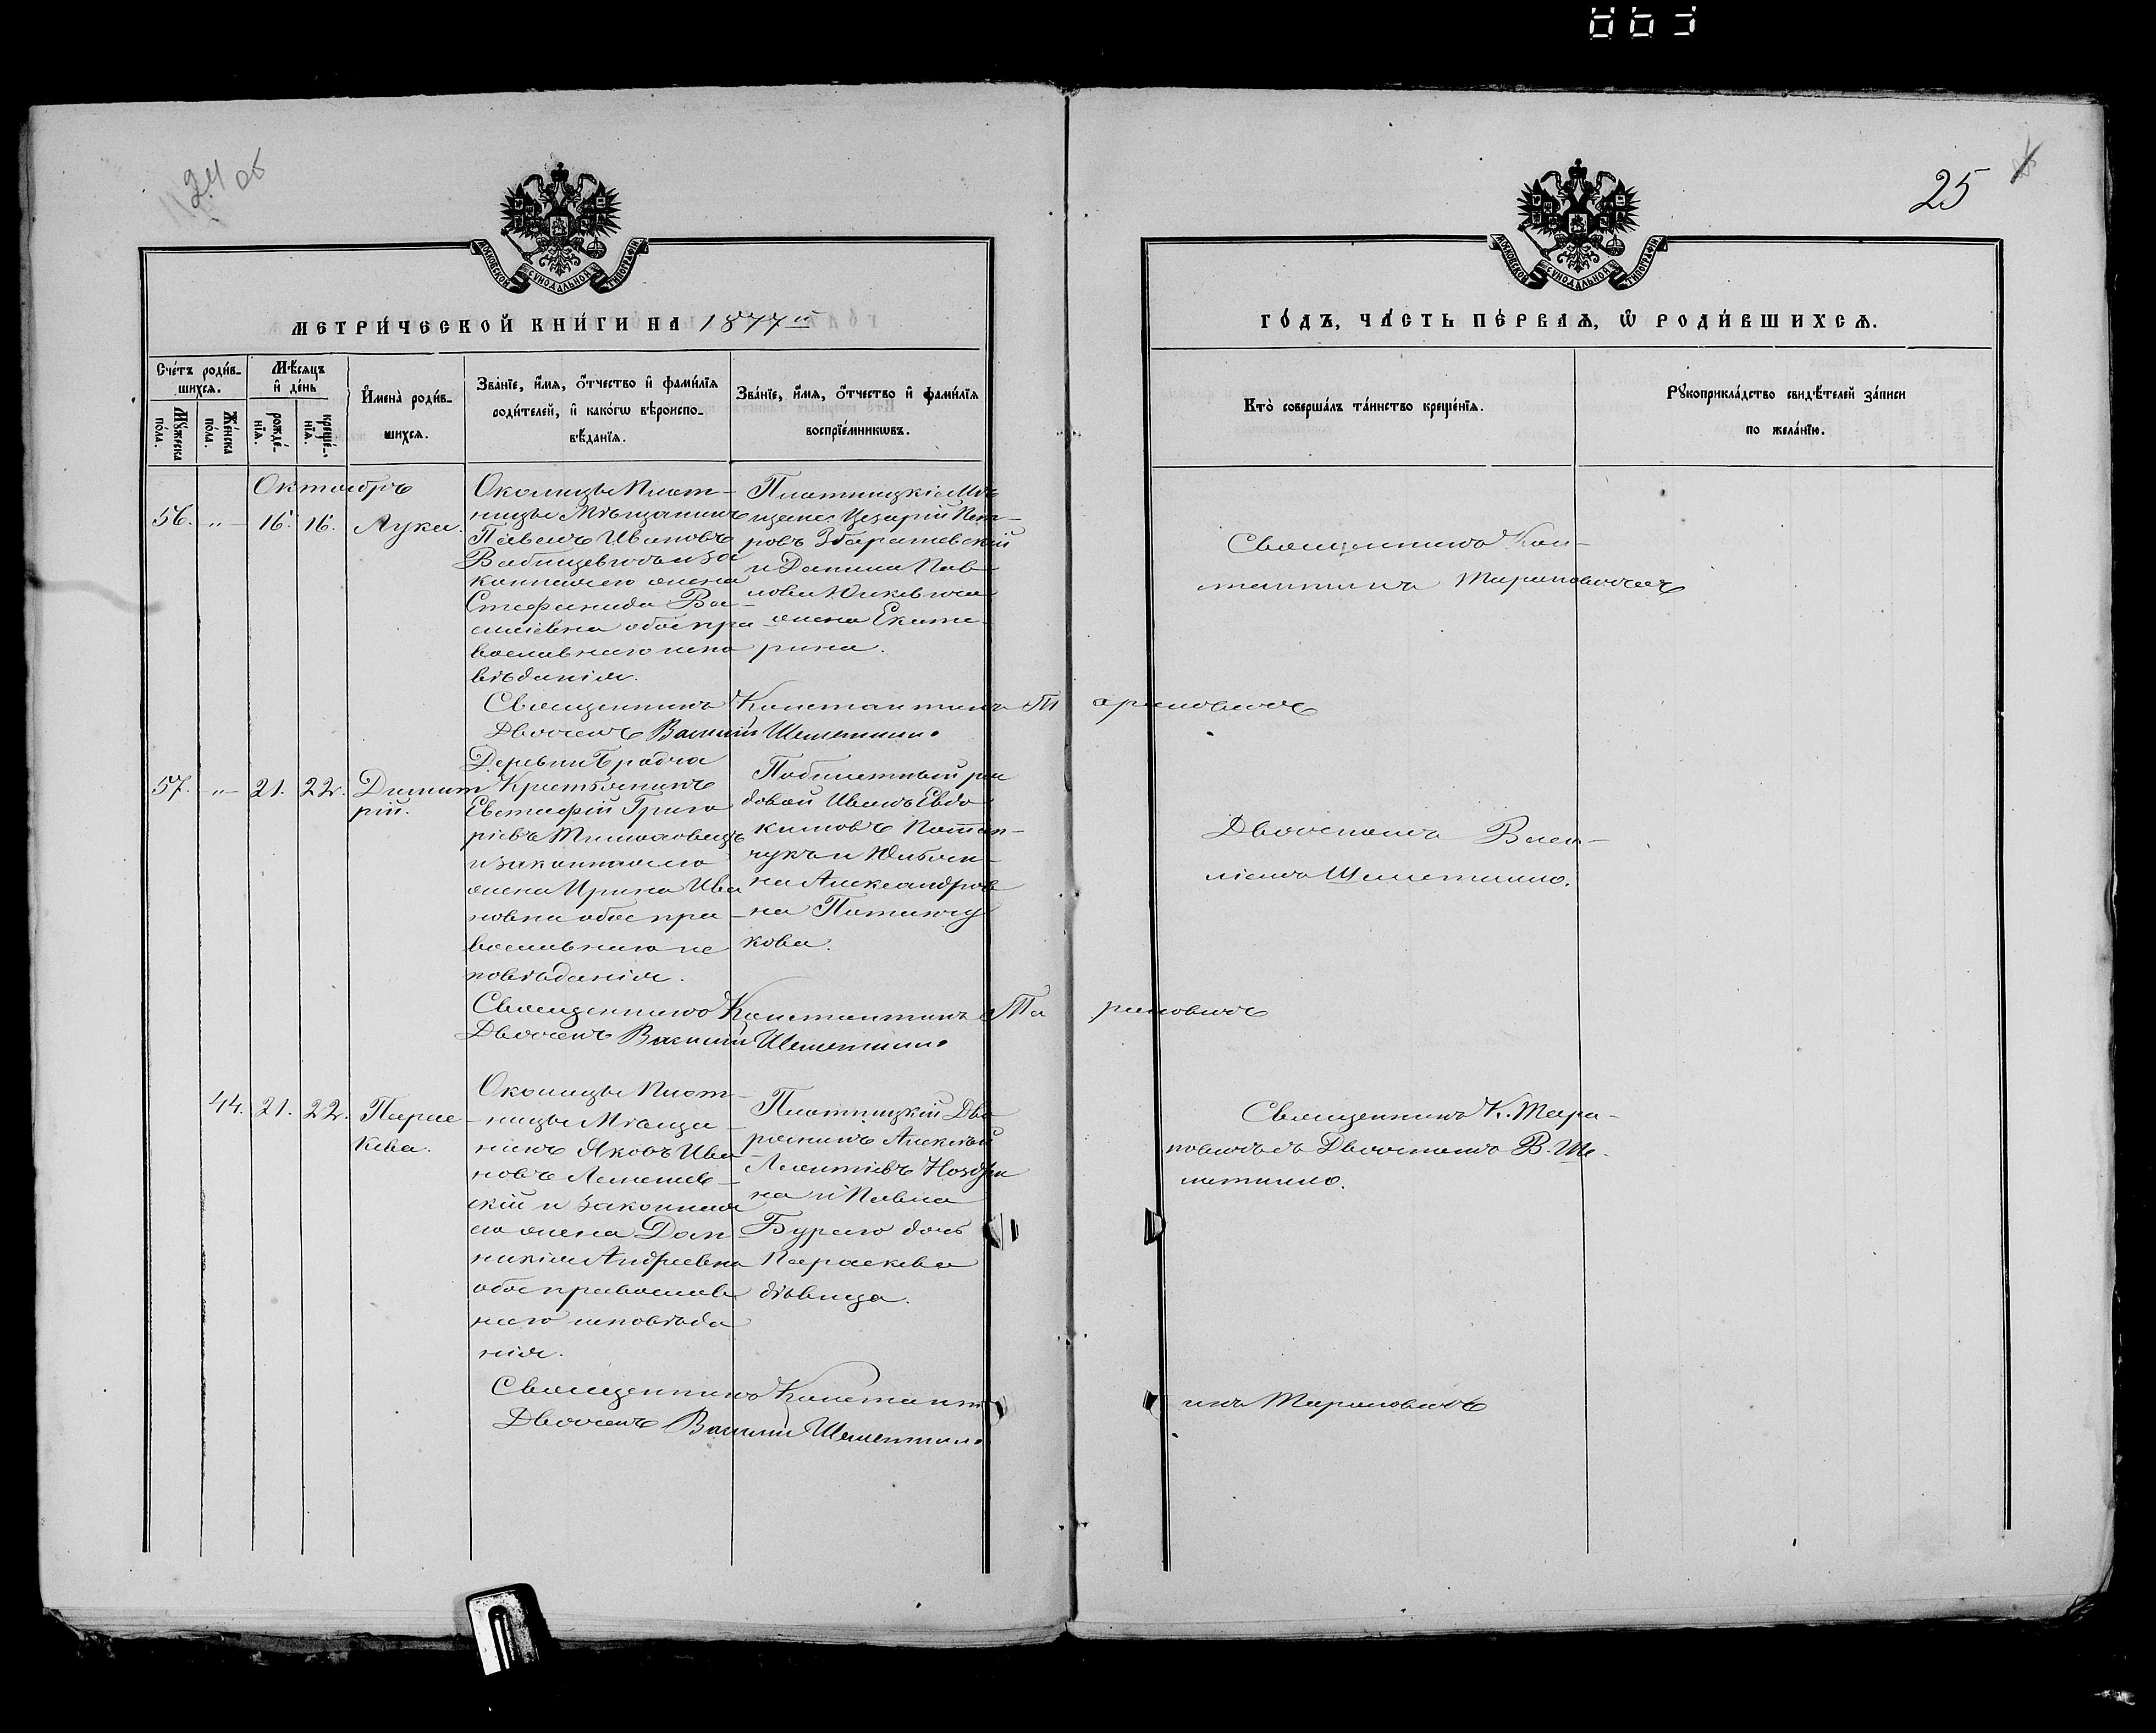 24 об
25
МОСКОВСКОЙ СУНОДАЛЬНОЙ ТИПОГРАФІИ
МОСКОВСКОЙ СУНОДАЛЬНОЙ ТИПОГРАФІИ
МЕТРИ́ЧЕСКОЙ КНИ́ГИ НА 1877 й
ГО́ДЪ, ЧА́СТЬ ПЕ́РВАЯ, Ѡ РОДИ́ВШИХСЯ.
Сче́тъ роди́в-
шихся.
Мꙋ́жеска
по́ла.
Же́нска
по́ла.
Мѣ́сяцъ
и҆ де́нь
рожде́-
нїя.
креще́-
нїя.
И҆мена̀ роди́в-
шихся.
Зва́нїе, и҆́мя, ѻ҆́тчество и҆ фами́лїя
роди́телей, и҆ како́гѡ вѣроиспо-
вѣ́данїя.
Зва́нїе, и҆́мя, ѻ҆́тчество и҆ фами́лїя
воспрїе́мникѡвъ.
Кто̀ соверша́лъ та́инство креще́нїя.
Рꙋкоприкла́дство свидѣ́телей за́писи
по жела́нїю.
Октябрь
56. „ 16. 16. Лука.
Околицы Пят-
ницы Мѣщанинъ
Павелъ Ивановъ
и за
конная его жена
Стефанида Ва-
силіевна обое пра
вославнаго испо
вѣданія.
Пятницкіе Мѣ
щане: Цезарій Пет-
ровъ Збарашевскій
и Данила Пав-
лова
жена Екате-
рина.
Священникъ Кон-
стантинъ Тарановичъ
Священникъ Константинъ Тарановичъ
Дьячекъ Василій Шеметилло
57. „ 21. 22. Димит
рій.
Деревни Градча
Крестьянинъ
Евстафій Григо
ріевъ Тимоховецъ
и законная его
жена Ирина Ива
новна обое пра-
вославнаго ис
повѣданія.
Побилетный ря
довой Иванъ Евдо
кимовъ Потап-
чукъ и Юліан-
на Александров
на Потапчу
кова.
Дьячкомъ Васи-
ліемъ Шеметилло.
Священникъ Константинъ Тарановичъ
Дьячекъ Василій Шеметилло
44. 21. 22. Парас
кева.
Околицы Пят-
ницы Мѣща-
нинъ Яковъ Ива
новъ Лемешев-
скій и законная
его жена Дом-
никія Андреевна
обое православ
наго исповѣда
нія.
Пятницкій Дво
рянинъ Алексѣй
Леонтіевъ Ноздри
на и Павла
Бураго дочь
Параскева
дѣвица.
Священникъ К. Тара-
новичъ съ Дьячкомъ В. Ше-
метилло.
Священникъ Константинъ Тарановичъ
Дьячекъ Василій Шеметилло